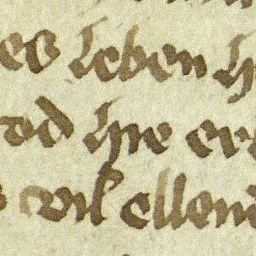 es leben h
tod hie er
vil ellend